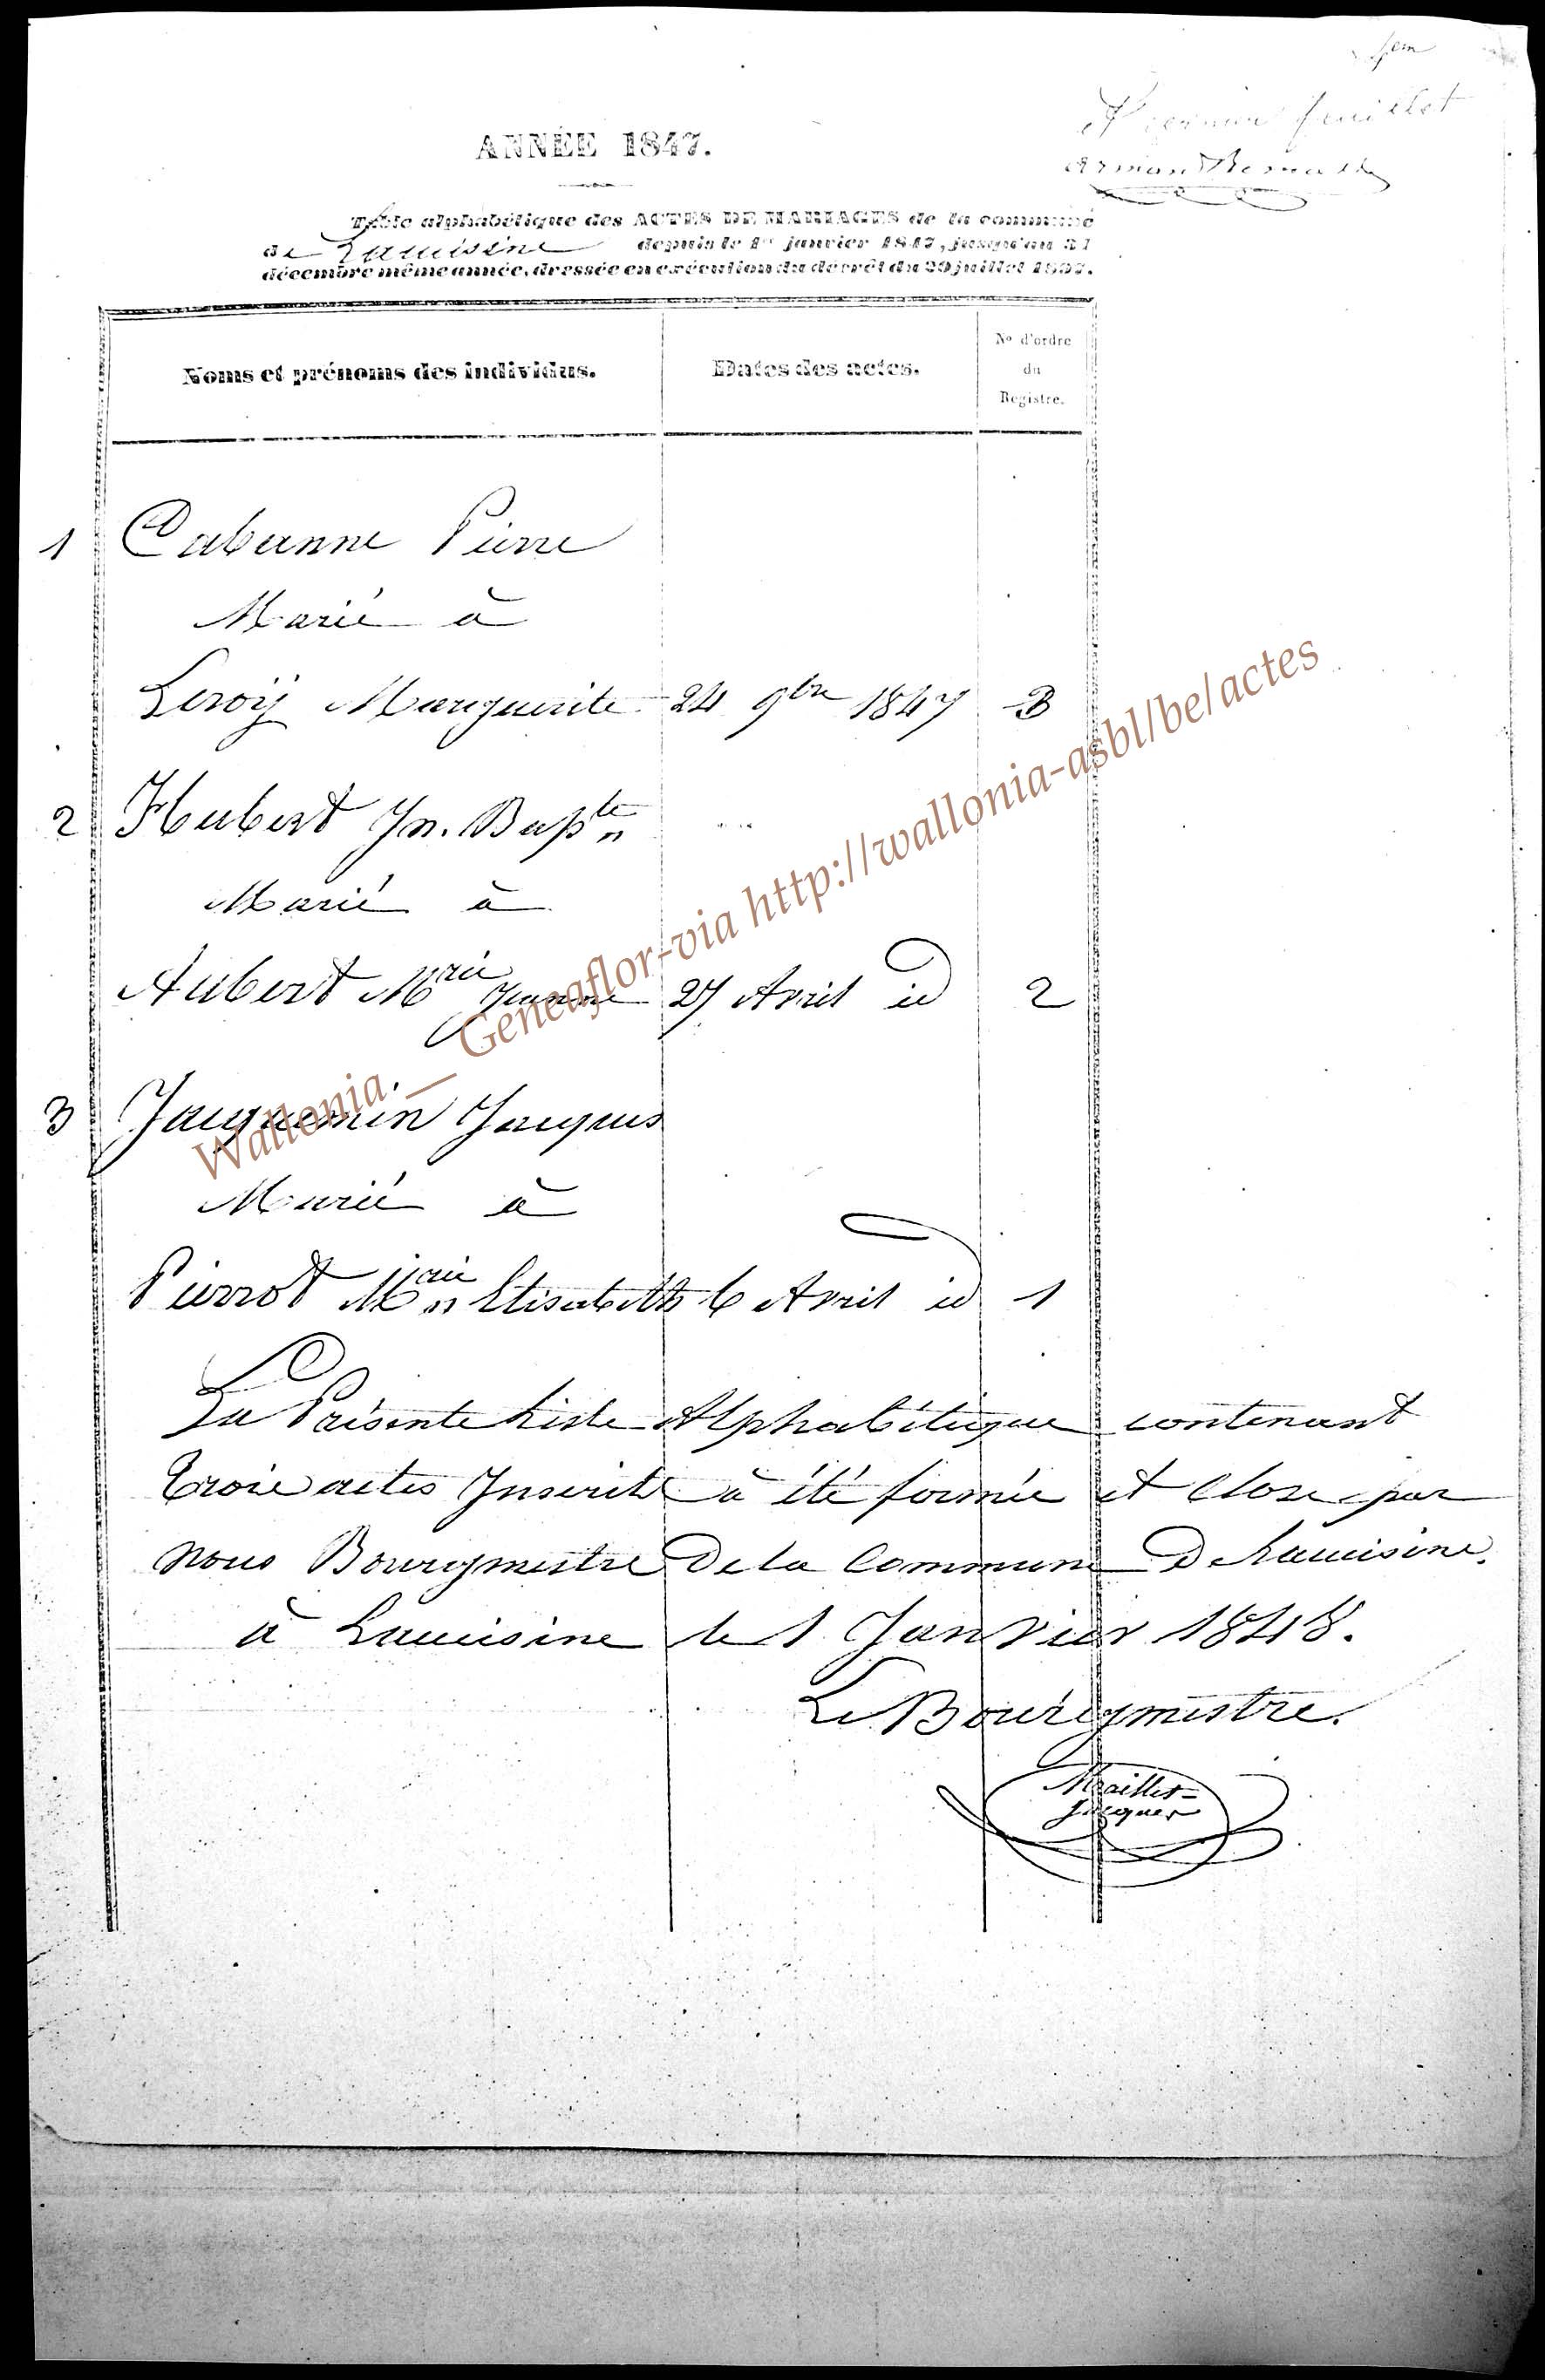 feuillet
ANNÉE 1847.
Table alphabétique des ACTES DE MARIAGES de la commune
de Lacuisine depuis le 1er janvier 1847, jusqu'au 31
décembre même année, dressée en exécution du décrêt du 20 juillet 1807.
Noms et prénoms des individus. Dates des actes. No d'ordre du Registre.
1 Cabanne Pierre
Marié à
Leroÿ Marguerite 24 9bre 1847 3
2 Hubert Jn. Bapte
Marié à
Aubert Mrie Jeanne 27 Avril id 2
3 Jacquemin Jacques
Marié à
Pierrot Mrie Elisabeth 6 Avril id 1
La Présente Liste Alphabétique contenant
Trois actes Inscrits à été formée et Close par
nous Bourgmestre De la Commune De Lacuisine.
à Lacuisine le 1 Janvier 1848.
Le Bourgmestre.
Maillet-
Jacques
Wallonia _ Geneaflor-via http://wallonia-asbl/be/actes